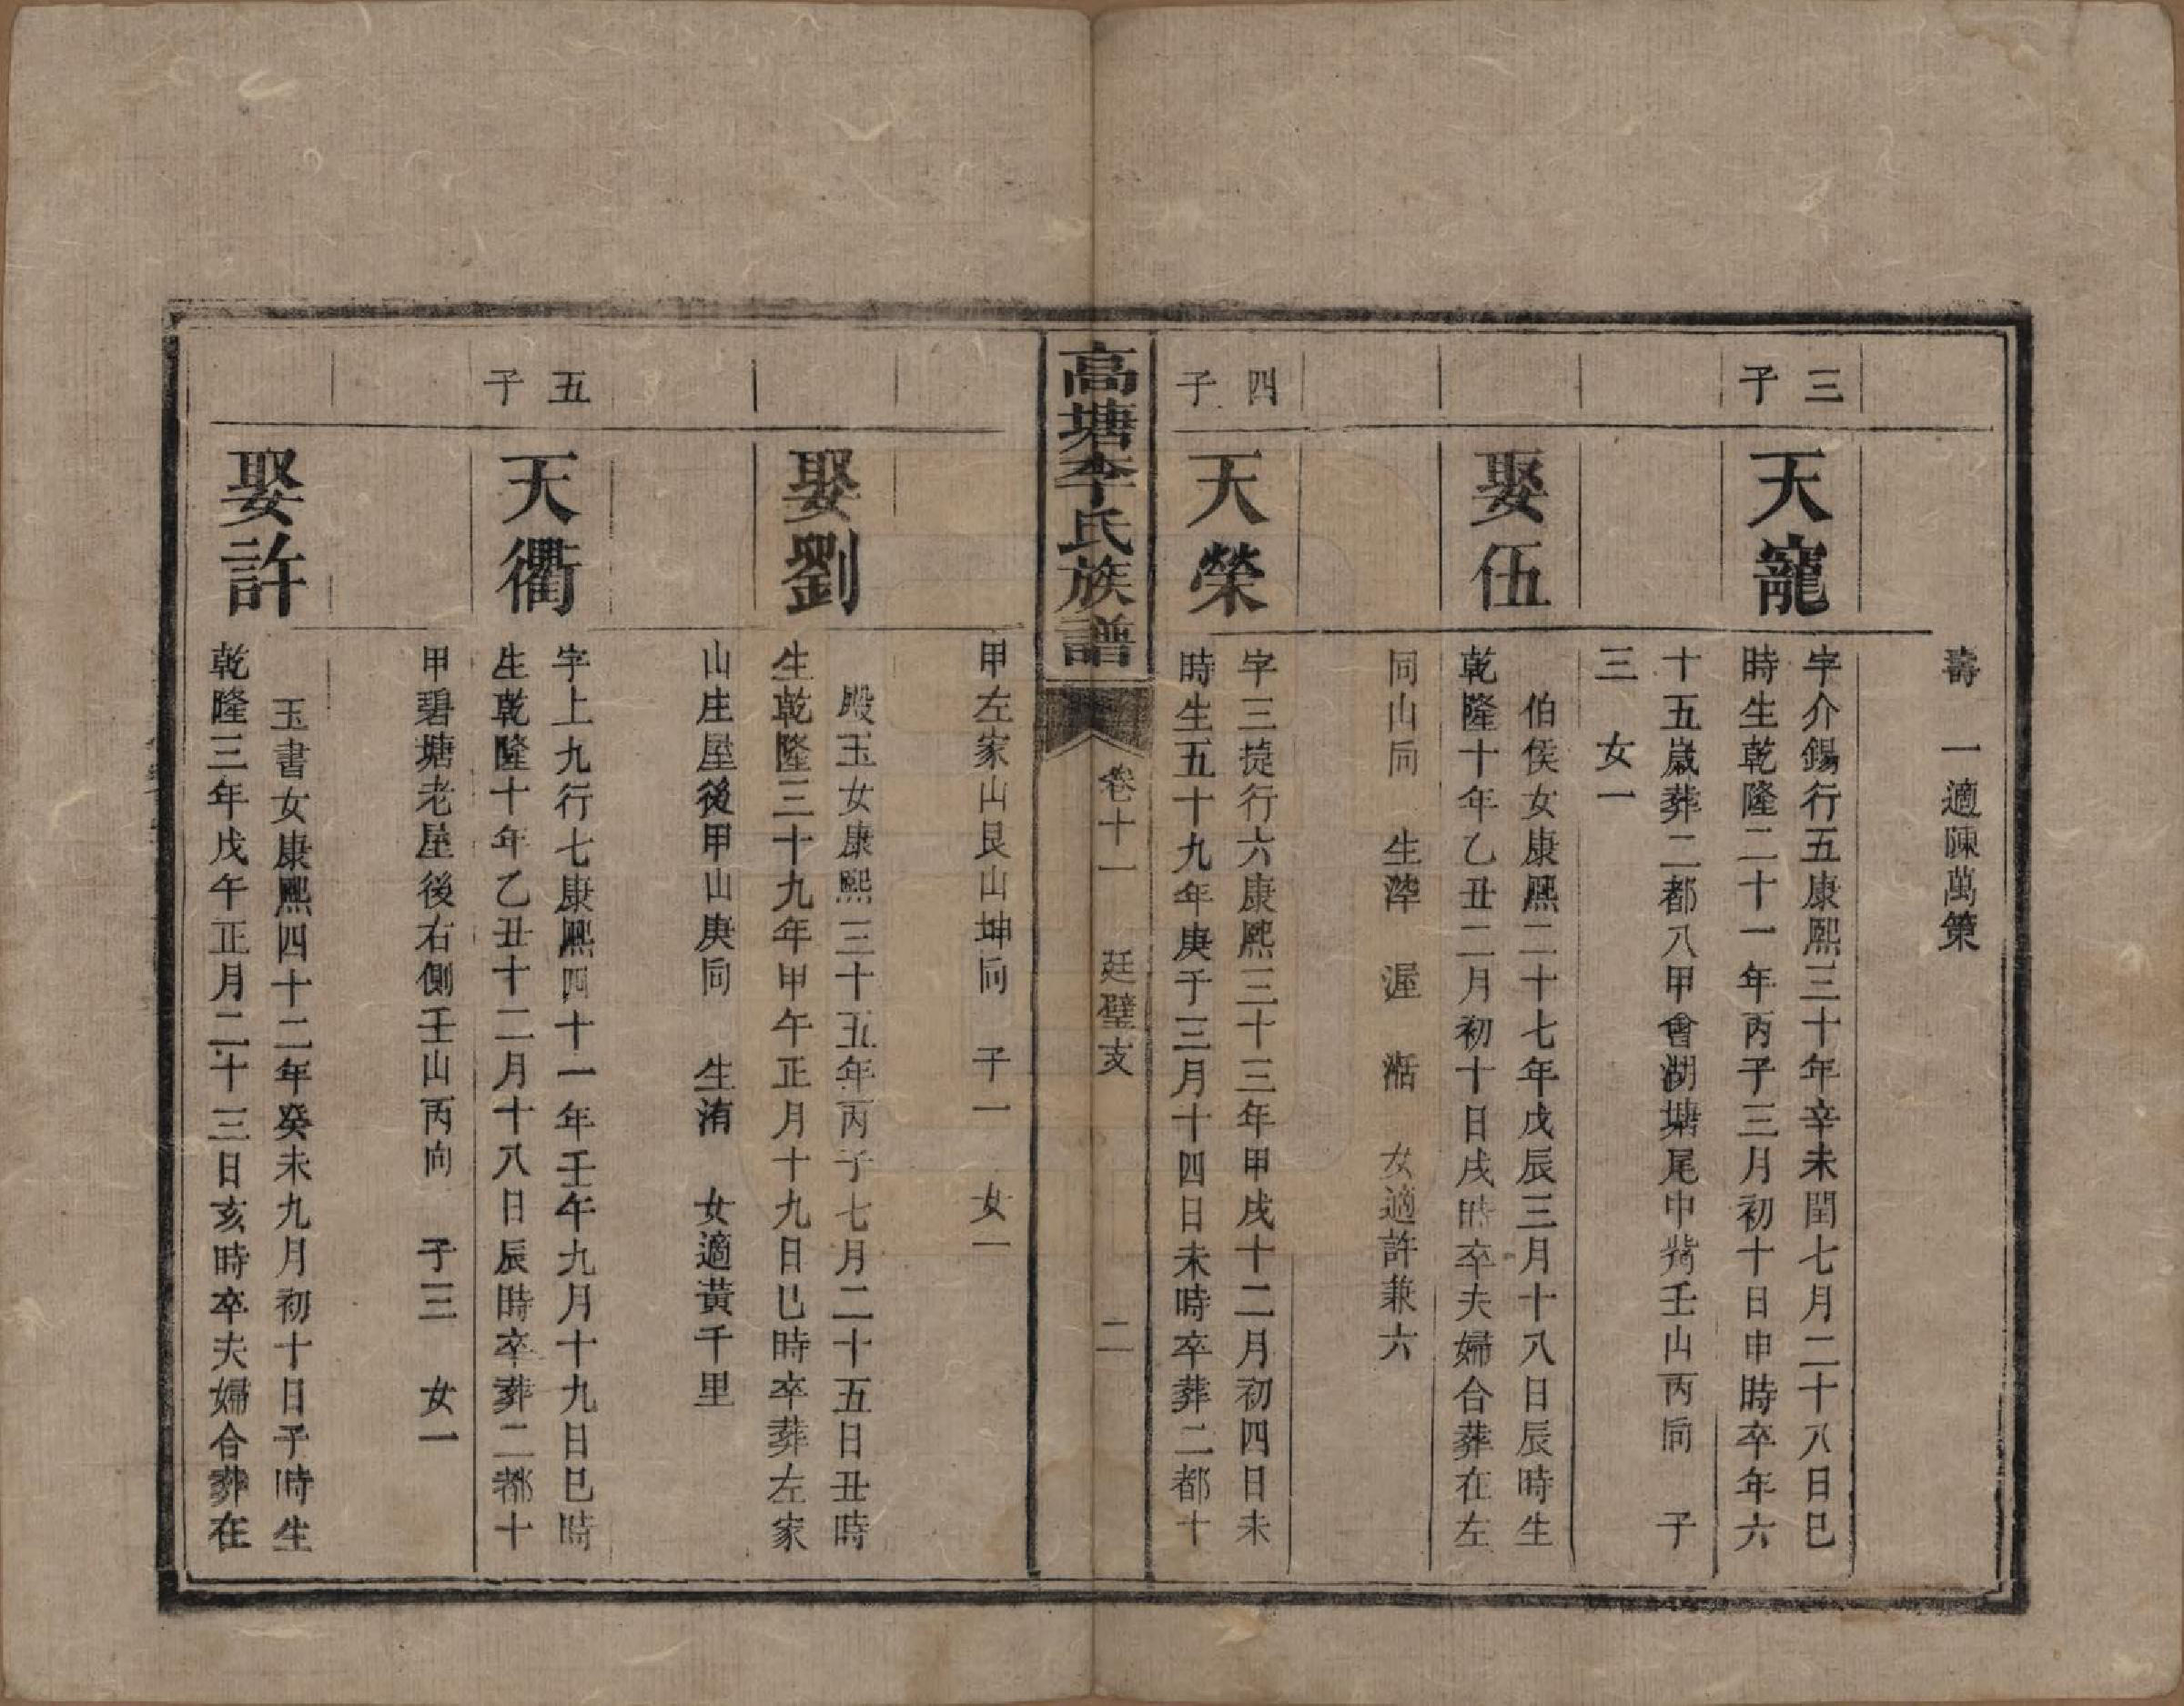 壽　一適陳萬策
三子
天寵
字介錫行五康熙三十年辛未閏七月二十八日巳
時生乾隆二十一年丙子三月初十日申時卒年六
十五歲葬二都八甲會湖塘尾中嘴壬山丙向　子
三　女一
娶伍
伯侯女康熙二十七年戊辰三月十八日辰時生
乾隆十年乙丑二月初十日戌時卒夫婦合葬在左
同山向　生滓　渥　湉　女適許兼六
四子
天榮
字三捷行六康熙三十三年甲戌十二月初四日未
時生五十九年庚子三月十四日未時卒葬二都十
高塘李氏族譜
卷十一　廷璧支　二
甲左家山艮山坤向　子一　女一
娶劉
殿玉女康熙三十五年丙子七月二十五日丑時
生乾隆三十九年甲午正月十九日巳時卒葬左家
山庄屋後甲山庚向　生洧　女適黃千里
五子
天衢
字上九行七康熙四十一年壬午九月十九日巳時
生乾隆十年乙丑十二月十八日辰時卒葬二都十
甲碧塘老屋後右側壬山丙向　子三　女一
娶許
玉書女康熙四十二年癸未九月初十日子時生
乾隆三年戊午正月二十三日亥時卒夫婦合葬在